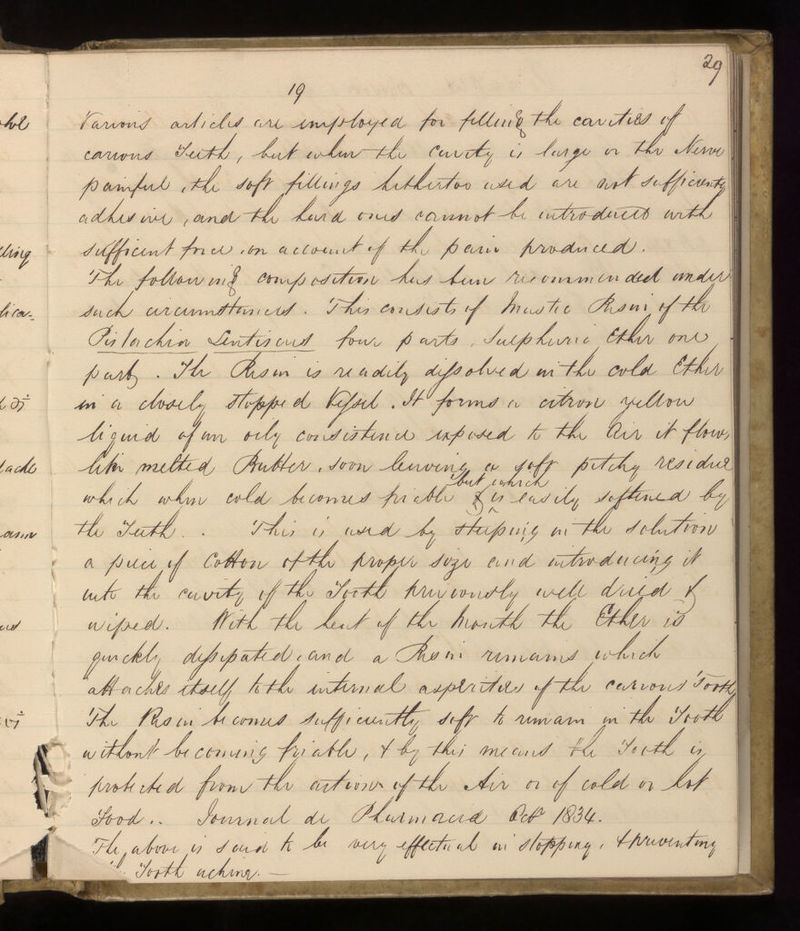 29
19
Various articles are employed for filling the cavities of
carious Teeth, but when the Cavity is large or the Nerve
painful, the soft fillings hithertoo used are not sufficiently
adhesive, and the hard ones cannot be introduced with
sufficient force, on account of the pain produced.
The following composition has been recommended under
such circumstances. This consists of Mastic Resin, of the
Pistachia Lentiscus four parts, Sulphuric Ether one
part. The Resin is readily dissolved in the cold Ether
in a closely stopped Vessel. It forms a citron yellow
liquid of an oily consistence exposed to the Air it flows
like melted Butter, soon leaving a soft pitchy residue
but which
which when cold becomes friable & is easily softened by
the Teeth. . This is used by steeping in the solution
a piece of Cotton of the proper size and introducing it
into the cavity of the Tooth previously well dried &
wiped. With the heat of the Mouth the Ether is
quickly dissipated, and a Resin remains which
attaches itself to the internal asperities of the carious Tooth
The Resin becomes sufficiently soft to remain in the Tooth
without becoming friable, & by this means the Tooth is
protected from the action of the Air or of cold or hot
Food.. Journal de Pharmacie Oct 1834.
The above is said to be very effectual in stopping, & preventing
Tooth aching. —